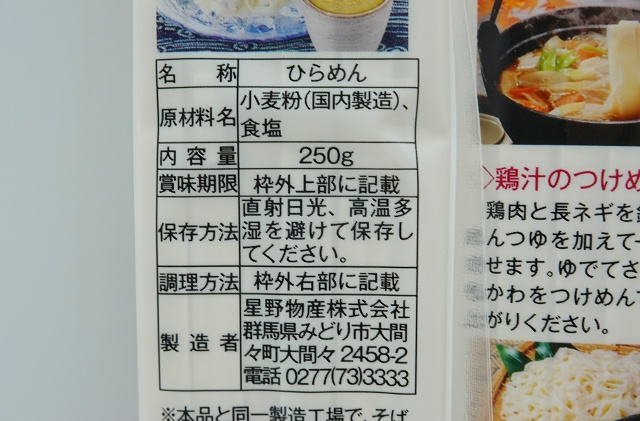 名称 ひらめん
原材料名 小麦粉(国内製造)、
食塩
内容量 250g
賞味期限 枠外上部に記載
保存方法 直射日光、高温多
湿を避けて保存し
てください。
調理方法 枠外右部に記載
製造者 星野物産株式会社
群馬県みどり市大間
々町大間々2458-2
電話 0277(73)3333
※本品と同一製造工場で、そば
鶏汁のつけめ
鶏肉と長ネギを
んつゆを加えて一
せます。ゆでてさ
かわをつけめん
がりください。